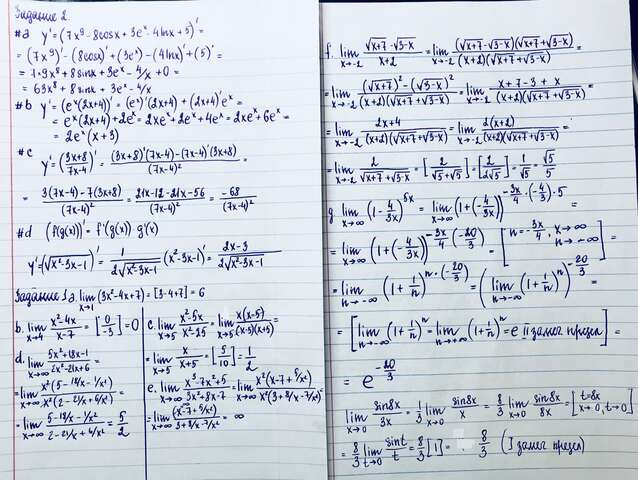 Задание 2.
#a y' = (7x⁹ - 8cosx + 3eˣ - 4lnx + 5)' =
= (7x⁹)' - (8cosx)' + (3eˣ) - (4lnx)' + (5)' =
= 7·9x⁸ + 8sinx + 3eˣ - 4/x + 0 =
= 63x⁸ + 8sinx + 3eˣ - 4/x
#b y' = (eˣ(2x+4))' = (eˣ)'(2x+4) + (2x+4)'eˣ =
= eˣ(2x+4) + 2eˣ = 2xeˣ + 2eˣ + 4eˣ = 2xeˣ + 6eˣ =
= 2eˣ(x+3)
#c y' = ((3x+8)/(7x-4))' = ((3x+8)'(7x-4) - (7x-4)'(3x+8))/(7x-4)² =
= (3(7x-4) - 7(3x+8))/(7x-4)² = (21x-12-21x-56)/(7x-4)² = -68/(7x-4)²
#d (f(g(x)))' = f'(g(x)) g'(x)
y' = (√(x²-3x-1))' = 1/(2√(x²-3x-1)) (x²-3x-1)' = (2x-3)/(2√(x²-3x-1))
Задание 1 a. lim x→1 (3x²-4x+7) = [3-4+7] = 6
b. lim x→4 (x²-4x)/(x-7) = [0/-3] = 0
d. lim x→∞ (5x²+18x-1)/(2x²-21x+6) =
= lim x→∞ x²(5-18/x-1/x²)/x²(2-21/x+6/x²) =
= lim x→∞ (5-18/x-1/x²)/(2-21/x+6/x²) = 5/2
c. lim x→5 (x²-5x)/(x²-25) = lim x→5 x(x-5)/(x-5)(x+5) =
= lim x→5 x/(x+5) = [5/10] = 1/2
e. lim x→∞ (x³-7x²+5)/(3x²+8x-7) = lim x→∞ x²(x-7+5/x²)/x²(3+8/x-7/x²) =
= lim x→∞ (x-7+5/x²)/(3+8/x-7/x²) = ∞
f. lim x→-2 (√(x+7) - √(3-x))/(x+2) = lim x→-2 (√(x+7)-√(3-x))(√(x+7)+√(3-x))/(x+2)(√(x+7)+√(3-x)) =
= lim x→-2 ((√(x+7))² - (√(3-x))²)/(x+2)(√(x+7)+√(3-x)) = lim x→-2 (x+7-3+x)/(x+2)(√(x+7)+√(3-x)) =
= lim x→-2 (2x+4)/(x+2)(√(x+7)+√(3-x)) = lim x→-2 2(x+2)/(x+2)(√(x+7)+√(3-x)) =
= lim x→-2 2/(√(x+7)+√(3-x)) = [2/(√5+√5)] = [2/(2√5)] = 1/√5 = √5/5
g. lim x→∞ (1-4/3x)^(5x) = lim x→∞ (1+(-4/3x))^(-3x/4·(-4/3)·5) =
= lim x→∞ (1+(-4/3x))^(-3x/4·(-20/3)) = [n = -3x/4, x→∞ n→-∞] =
= lim n→-∞ (1+1/n)^(n·(-20/3)) = (lim n→-∞ (1+1/n)ⁿ)^(-20/3) =
= [lim n→-∞ (1+1/n)ⁿ = lim n→+∞ (1+1/n)ⁿ = e II замеч предел] =
= e^(-20/3)
lim x→0 sin8x/3x = 1/3 lim x→0 sin8x/x = 8/3 lim x→0 sin8x/8x = [t=8x x→0, t→0] =
= 8/3 lim t→0 sint/t = 8/3 [1] = 8/3 (I замеч предел)